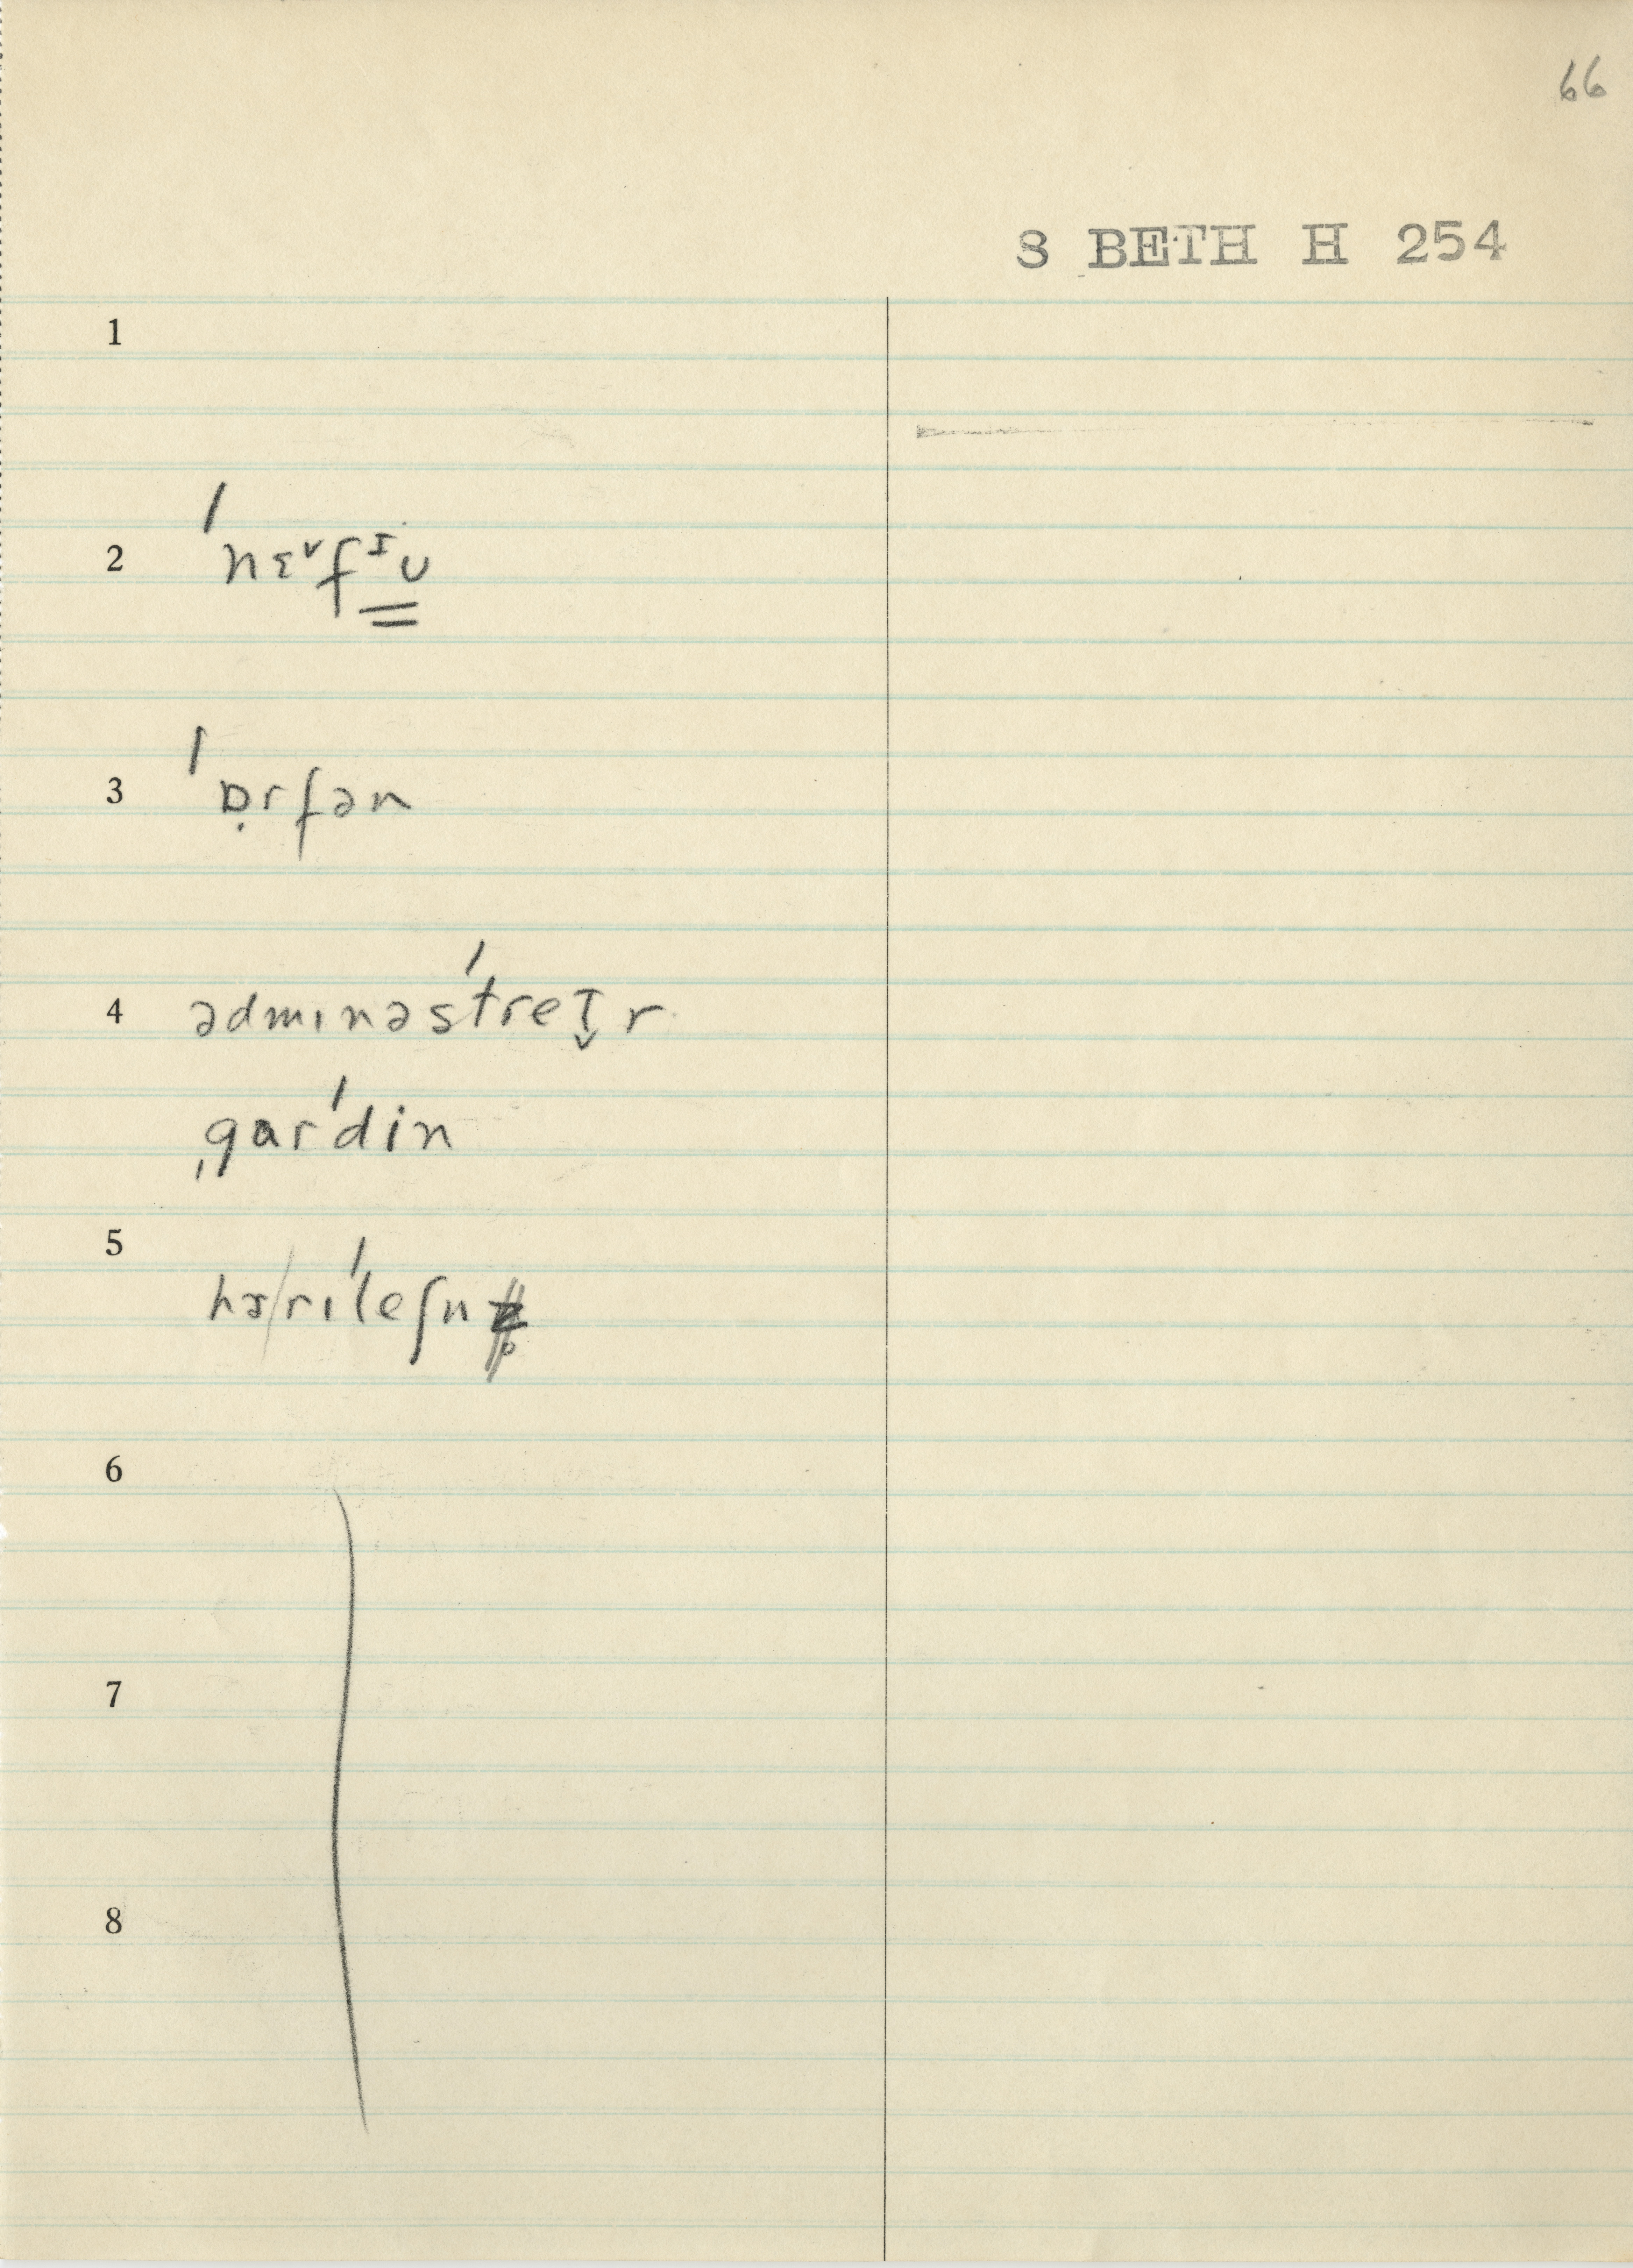 66
S BETH H 254
1
2 ˈnɛᵛfᶦu
3 ˈɒ̣rfən
4 ədmɪnəsˈtreT̬r
ˌgarˈdin
5 hɚrɪˈleʃn
6
7
8